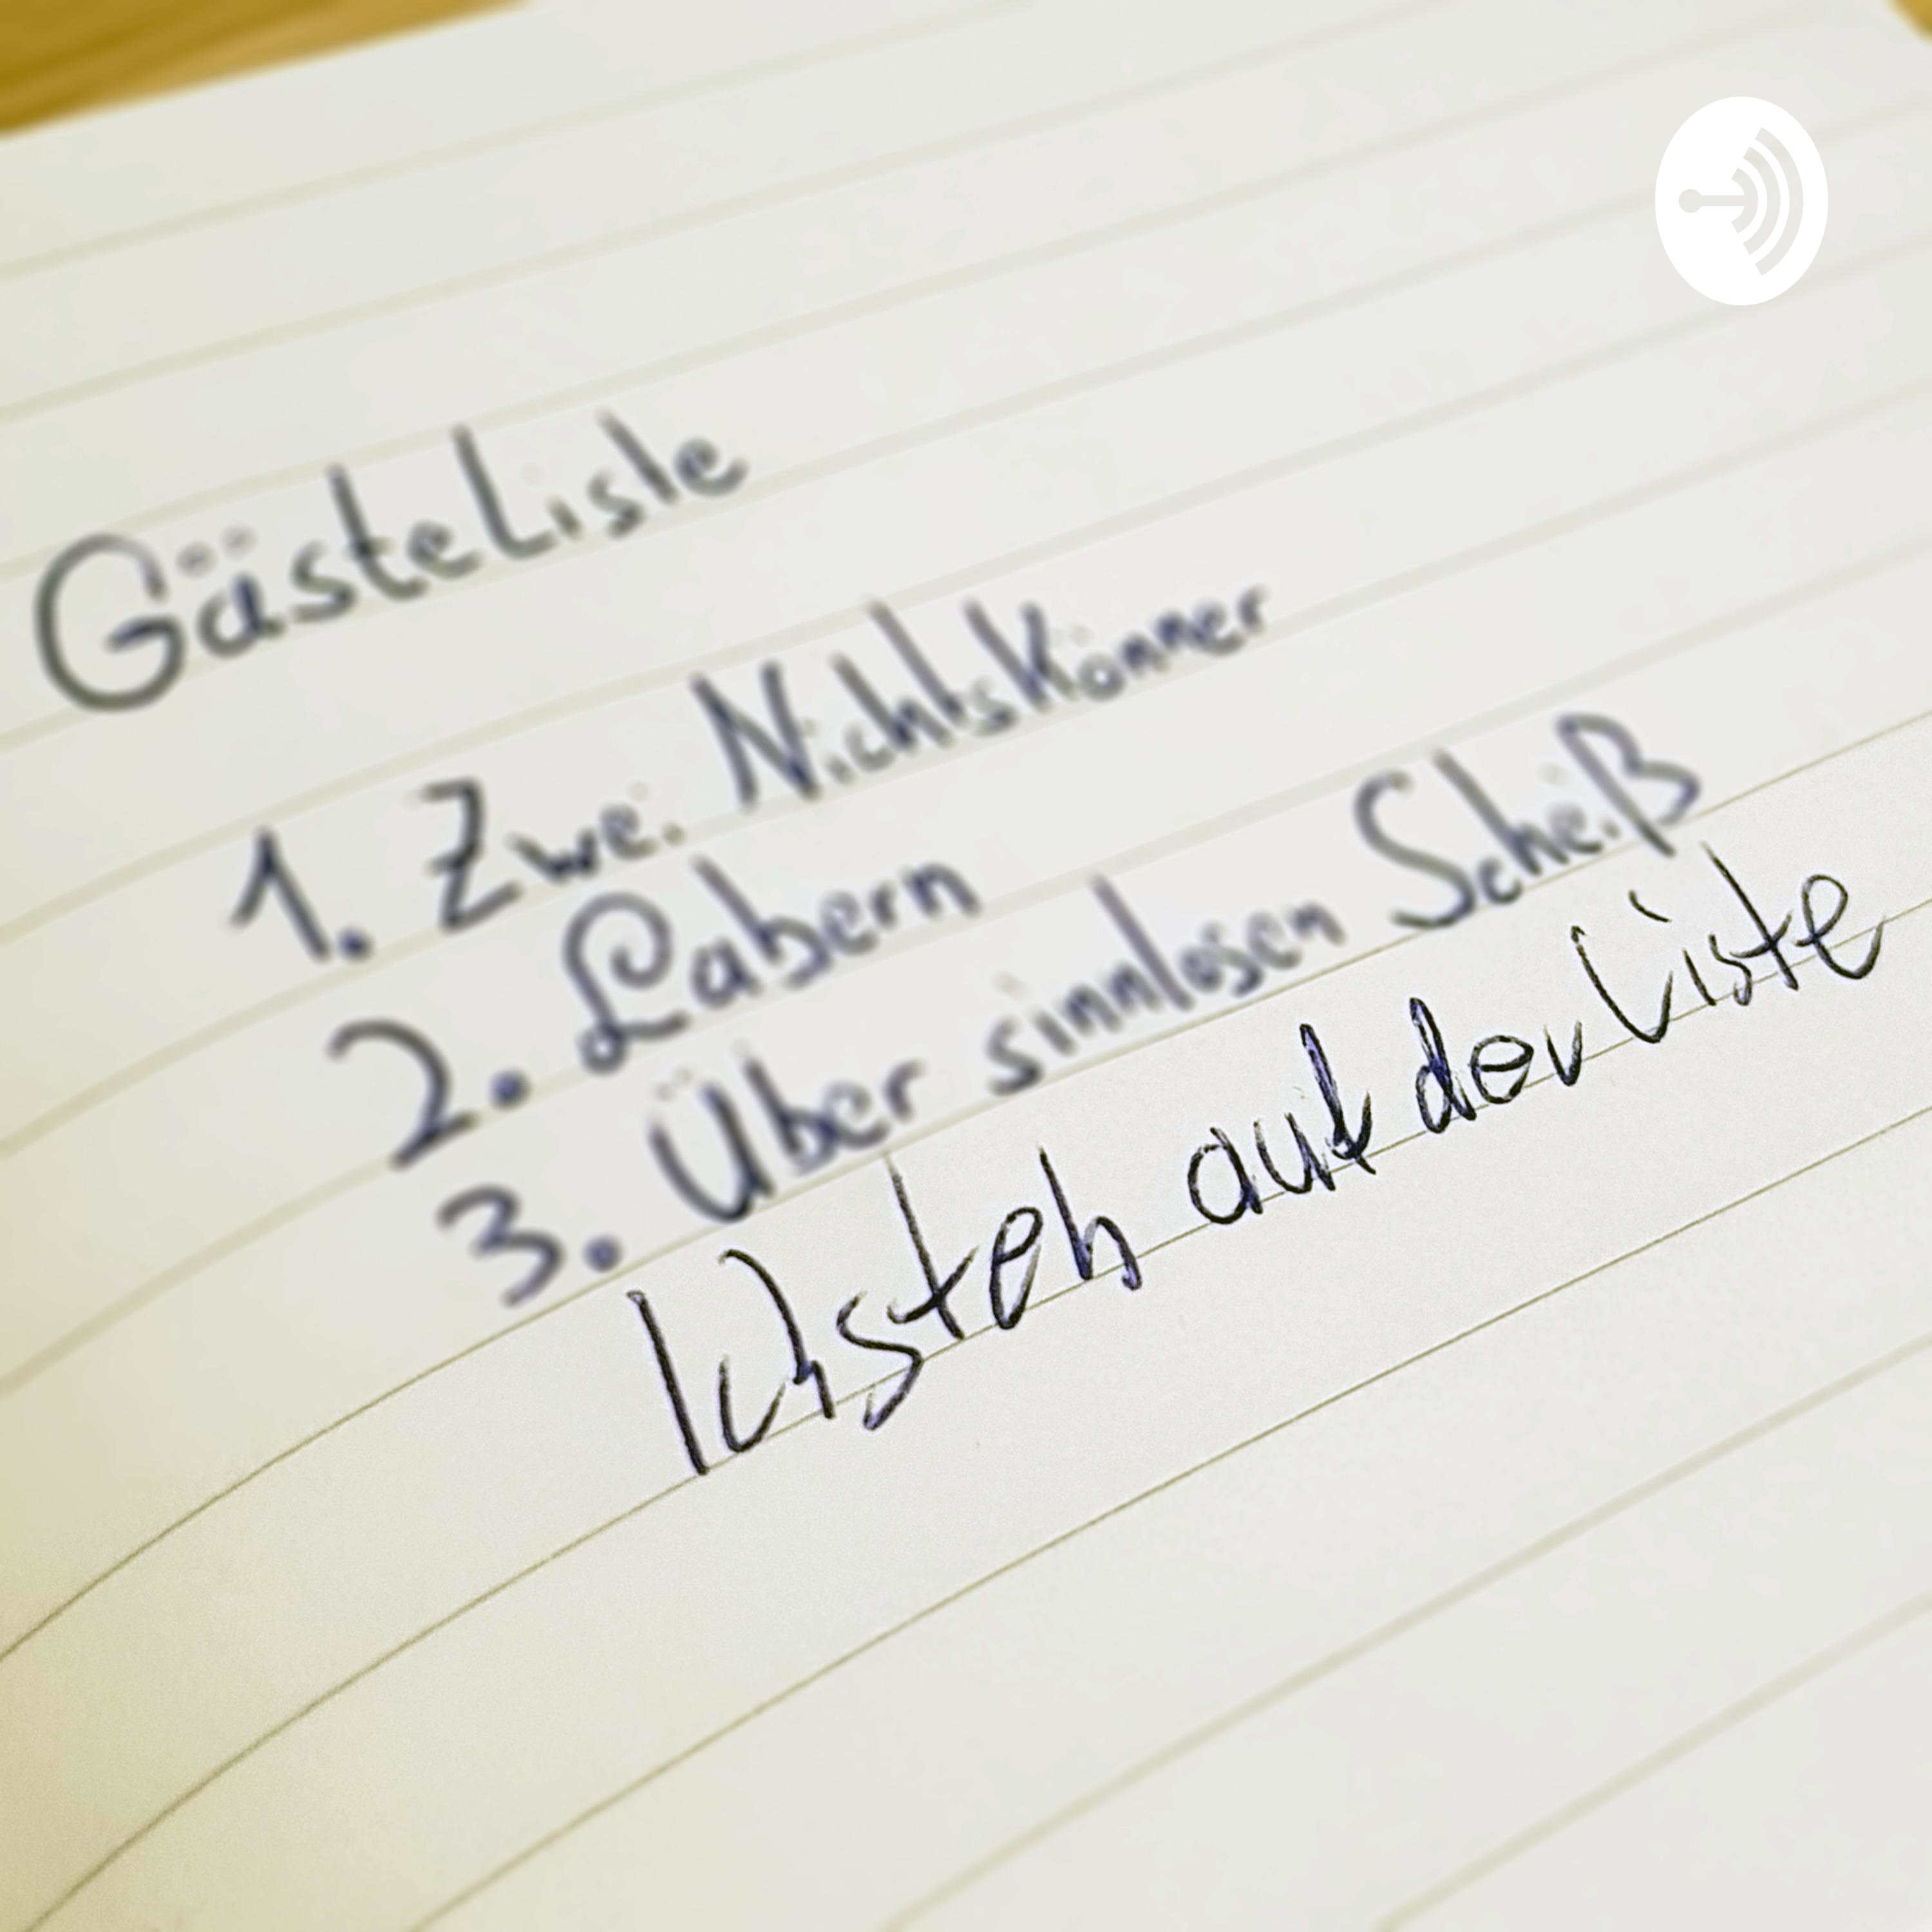 GästeListe
1. Zwei Nichtskönner
2. Labern
3. Über sinnlosen Scheiß
Ich steh auf der Liste